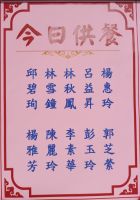 今日供餐
楊惠玲
呂益昇
林秋鳳
林雪鐘
邱碧珣
郭芝縈
彭玉玲
李素華
陳麗玲
楊雅芳